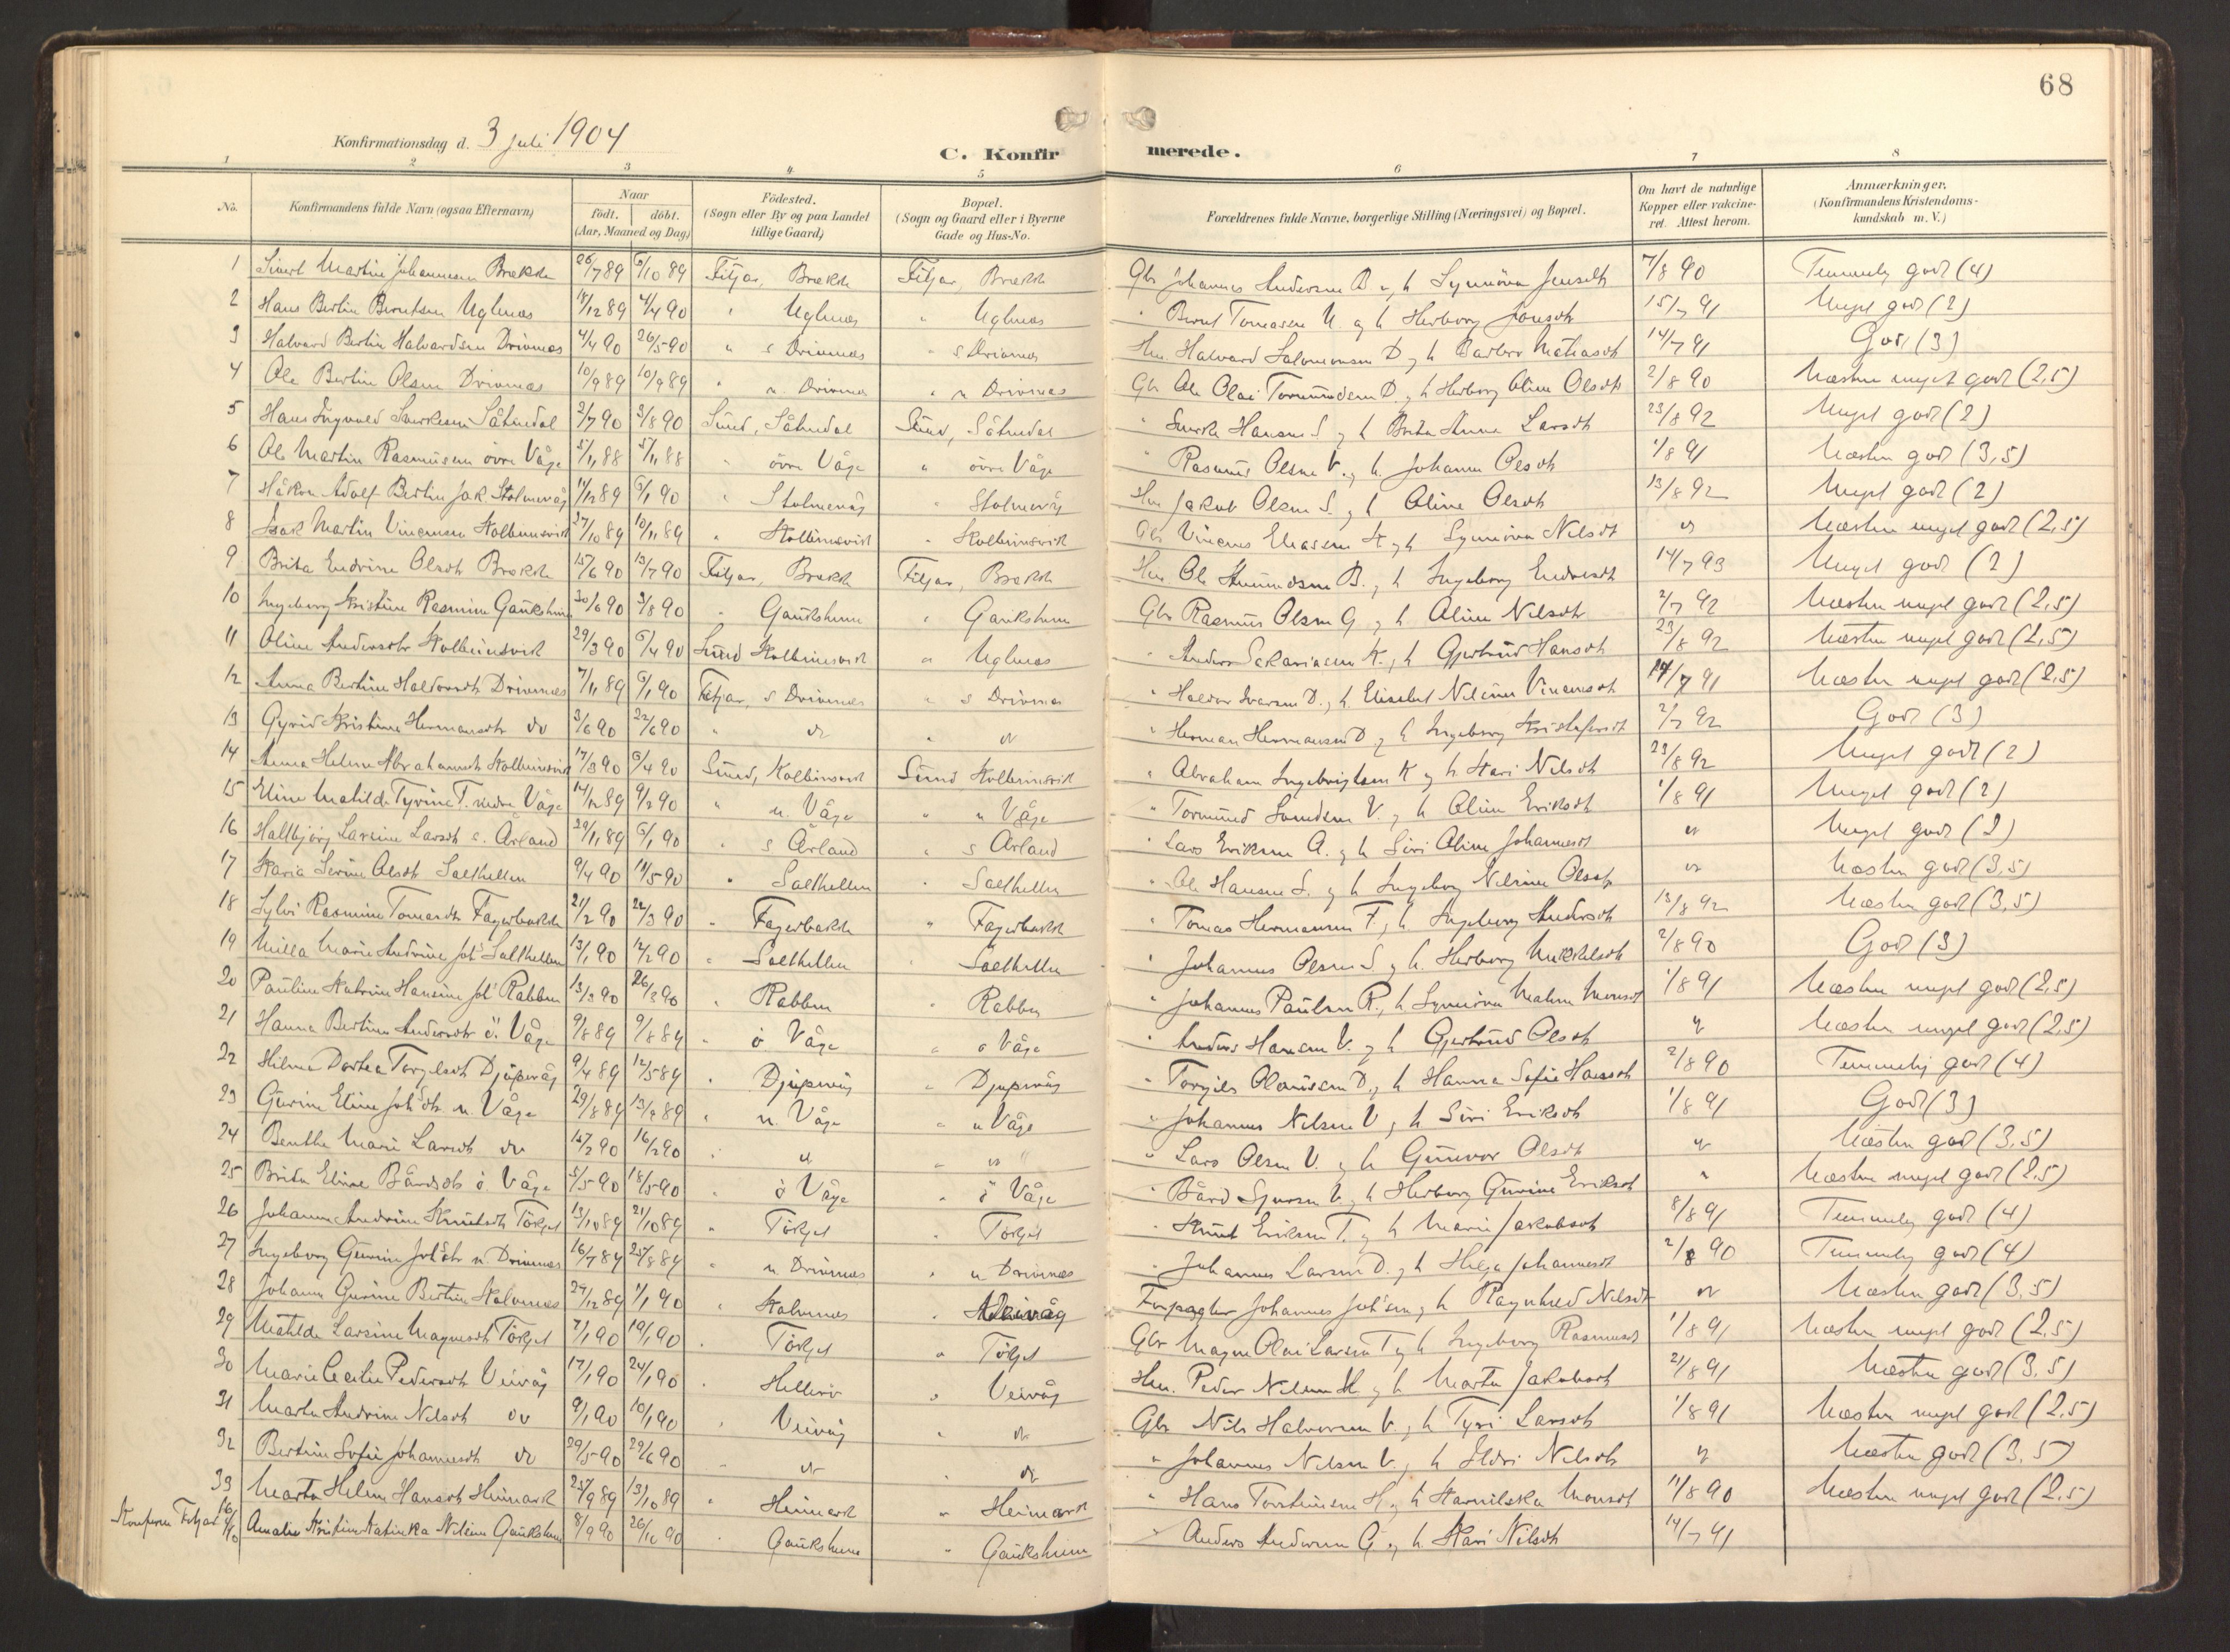 68
Konfirmationsdag d. 3 juli 1904
C. Konfirmerede.
1 2 3 4 5 6 7 8
No. Konfirmandens fulde Navn (ogsaa Efternavn) Naar født. døbt. (Aar, Maaned og Dag) Födested. (Sogn eller By og paa Landet tillige Gaard) Bopæl. (Sogn og Gaard eller i Byerne Gade og Hus-No. Forældrenes fulde Navne, borgerlige Stilling (Næringsvei) og Bopæl. Om havt de naturlige Kopper eller vakcineret. Attest herom. Anmærkninger. (Konfirmandens Kristendomskundskab m. V.)
1 Sivert Martin Johannesen 26/7 89 /10 89 Fitjar, Fitjar, Gbr Johannes Andersen B og h Synnöva 7/8 90 godt (4)
2 Hans Bertin Berntsen Uglenes 18/12 89 4/4 90 " Uglenes " Uglenes " Bernt Tomasen U. og h Herborg 15/7 91 Meget godt (2)
3 Halvard Bertin Halvardsen Drivenes 4/4 90 26/5 90 " s Drivenes " s Drivenes Hm. Halvard Salomonsen D og h 14/7 91 Godt (3)
4 Ole Bertin Olsen Drivenes 10/9 89 10/9 89 " n. Drivenes " n Drivenes Gbr Ole Olai D. og h Herborg Oline Olsdtr 2/8 90 Næsten meget godt (2,5)
5 Hans Ingvald Såtendal 2/7 90 3/8 90 Sund, Såtendal Sund, Såtendal " Hansen S og h Brita Anna Larsdtr 23/8 92 Meget godt (2)
6 Ole Martin Rasmusen övre Våge 5/11 88 5/11 88 " övre Våge " övre Våge " Rasmus Olsen V. og h. Johanna Olsdtr 1/8 91 Næsten godt (3,5)
7 Håkon Adolf Bertin Jak Stolmevåg 11/12 89 6/1 90 " Stolmevåg " Stolmevåg Hm Jakob Olsen S. og h Oline Olsdtr 13/8 92 Meget godt (2)
8 Isak Martin Kolbeinsvik 27/10 89 10/11 89 " Kolbeinsvik " Kolbeinsvik Gbr og h Synnöva Nilsdtr Næsten meget godt (2,5)
9 Brita Endrine Olsdtr 15/6 90 13/7 90 Fitjar, Fitjar, Hm Ole B. og h Ingeborg 14/7 93 Meget godt (2)
10 Ingeborg Kristine Rasmine Gauksheim 30/6 90 3/8 90 " Gauksheim " Gauksheim Gbr Rasmus Olsen G og h Oline Nilsdtr 2/7 92 Næsten meget godt (2,5)
11 Oline Andersdtr Kolbeinsvik 29/3 90 6/4 90 Sund Kolbeinsvik " Uglenes " Anders Sakariasen K. og h Gjertrud Hansdtr 23/8 92 Næsten meget godt (2,5)
12 Anna Bertine Drivenes 7/11 89 6/1 90 Fitjar, s Drivenes " s Drivenes " D. og h Elisabet 14/7 91 Næsten meget godt (2,5)
13 Gyrid Kristine Hermansdtr do 3/6 90 22/6 90 " do " do " Herman Hermansen D og h Ingeborg 2/7 92 Godt (3)
14 Anna Helene Abrahamsdtr Kolbeinsvik 17/3 90 6/4 90 Sund, Kolbeinsvik Sund Kolbeinsvik " Abraham Ingebrigtsen K og h. Kari Nilsdtr 23/8 92 Meget godt (2)
15 Eline Matilde Tyrine T. nedre Våge 14/12 89 9/2 90 " n. Våge " n Våge " Tormund V. og h Oline Eriksdtr 1/8 91 Meget godt (2)
16 Hallbjörg Larsine Larsdtr s. Årland 29/11 89 6/1 90 " s Årland " s Årland " Lars Eriksen A. og h Siri Oline Johannesdt Meget godt (2)
17 Karia Serine Olsdtr Salthellen 9/4 90 11/5 90 " Salthellen " Salthellen " Ole Hansen S. og h Ingeborg Nilsine Olsdtr Næsten godt (3,5)
18 Sylvi Rasmine Tomasdtr Fagerbakke 21/2 90 22/3 90 " Fagerbakke " Fagerbakke " Tomas Hermansen F, h Ingeborg Andersdt 13/8 92 Næsten godt (3,5)
19 Milla Marie Andrine Joh Salthellen 13/1 90 12/2 90 " Salthellen " Salthellen " Johannes Olsen S og h. Herborg Mikkelsdtr 2/8 90 Godt (3)
20 Pauline Katrine Hansine Joh Rabben 13/3 90 26/3 90 " Rabben " Rabben " Johannes Paulsen R., h Synnöva Malene Monsdt 1/8 91 Næsten meget godt (2,5)
21 Hanna Bertine Andersdtr ö. Våge 9/8 89 9/8 89 " ö Våge " ö Våge " Anders Hansen V. og h Gjertrud Olsdtr Næsten meget godt (2,5)
22 Hilma Dortea Torgilsdt Djupevåg 9/4 89 12/5 89 " Djupevåg " Djupevåg " Torgils D, h Hanna Sofie Hansdtr 2/8 90 godt (4)
23 Gurine Eline Johsdtr n. Våge 29/8 89 13/8 89 " n. Våge " n Våge " Johannes Nilsen V, h Siri Eriksdtr 1/8 91 Godt (3)
24 Benthe Marie Larsdt do 15/2 90 16/2 90 " do " do " Lars Olsen V. og h Gunvor Olsdt Næsten godt (3,5)
25 Brita Eline Bårdsdtr ö. Våge 5/5 90 18/5 90 " ö Våge " ö Våge " Bård Sjursen V. og h Herborg Gurine Eriksdt " Næsten meget godt (2,5)
26 Johanna Andrine Knutsdtr Törget 13/10 89 21/10 89 " Törget " Törget " Knut Eriksen T. og h Marie Jakobsdt 8/8 91 godt (4)
27 Ingeborg Gurine Johsdtr n Drivenes 16/7 89 25/8 89 " n Drivenes " n Drivenes " Johannes Larsen D. og h Helga Johannesdt 2/8 90 godt (4)
28 Johanna Gurine Bertine Kalvenes 24/12 89 1/1 90 " Kalvenes " Veivåg Forpagter Johannes Joh'sen og h Ragnhild Nilsdt Næsten godt (3,5)
29 Matilde Larsine Magnesdt Törget 7/1 90 19/1 90 " Törget " Törget Gbr Magne Olai Larsen T og h Ingeborg Rasmusdt 1/8 91 Næsten meget godt (2,5)
30 Marie Cecilie Pedersdt Veivåg 17/1 90 24/1 90 " " Veivåg Hm. Peder Nilsen H og h Marta Jakobsdt 21/8 91 Næsten godt (3,5)
31 Marta Andrine Nilsdt do 9/1 90 10/1 90 " Veivåg " do Gbr Nils Halvorsen V., h Tyri Larsdt 1/8 91 Næsten meget godt (2,5)
32 Bertine Sofie Johannesdt do 29/5 90 29/6 90 " do " do " Johannes Nilsen V., h Eldri Nilsdt Næsten godt (3,5)
33 Marta Helene Hansdt Heimark 25/9 89 13/10 89 " Heimark " Heimark " Hans Torsteinsen H, h Monsdt 11/8 90 Næsten meget godt (2,5)
Konform Fitjar 16/10 Amalie Kristine Katinka Nilsine Gauksheim 8/9 90 26/10 90 " Gauksheim " Gauksheim " Anders Andersen G og h. Kari Nilsdt 14/7 91